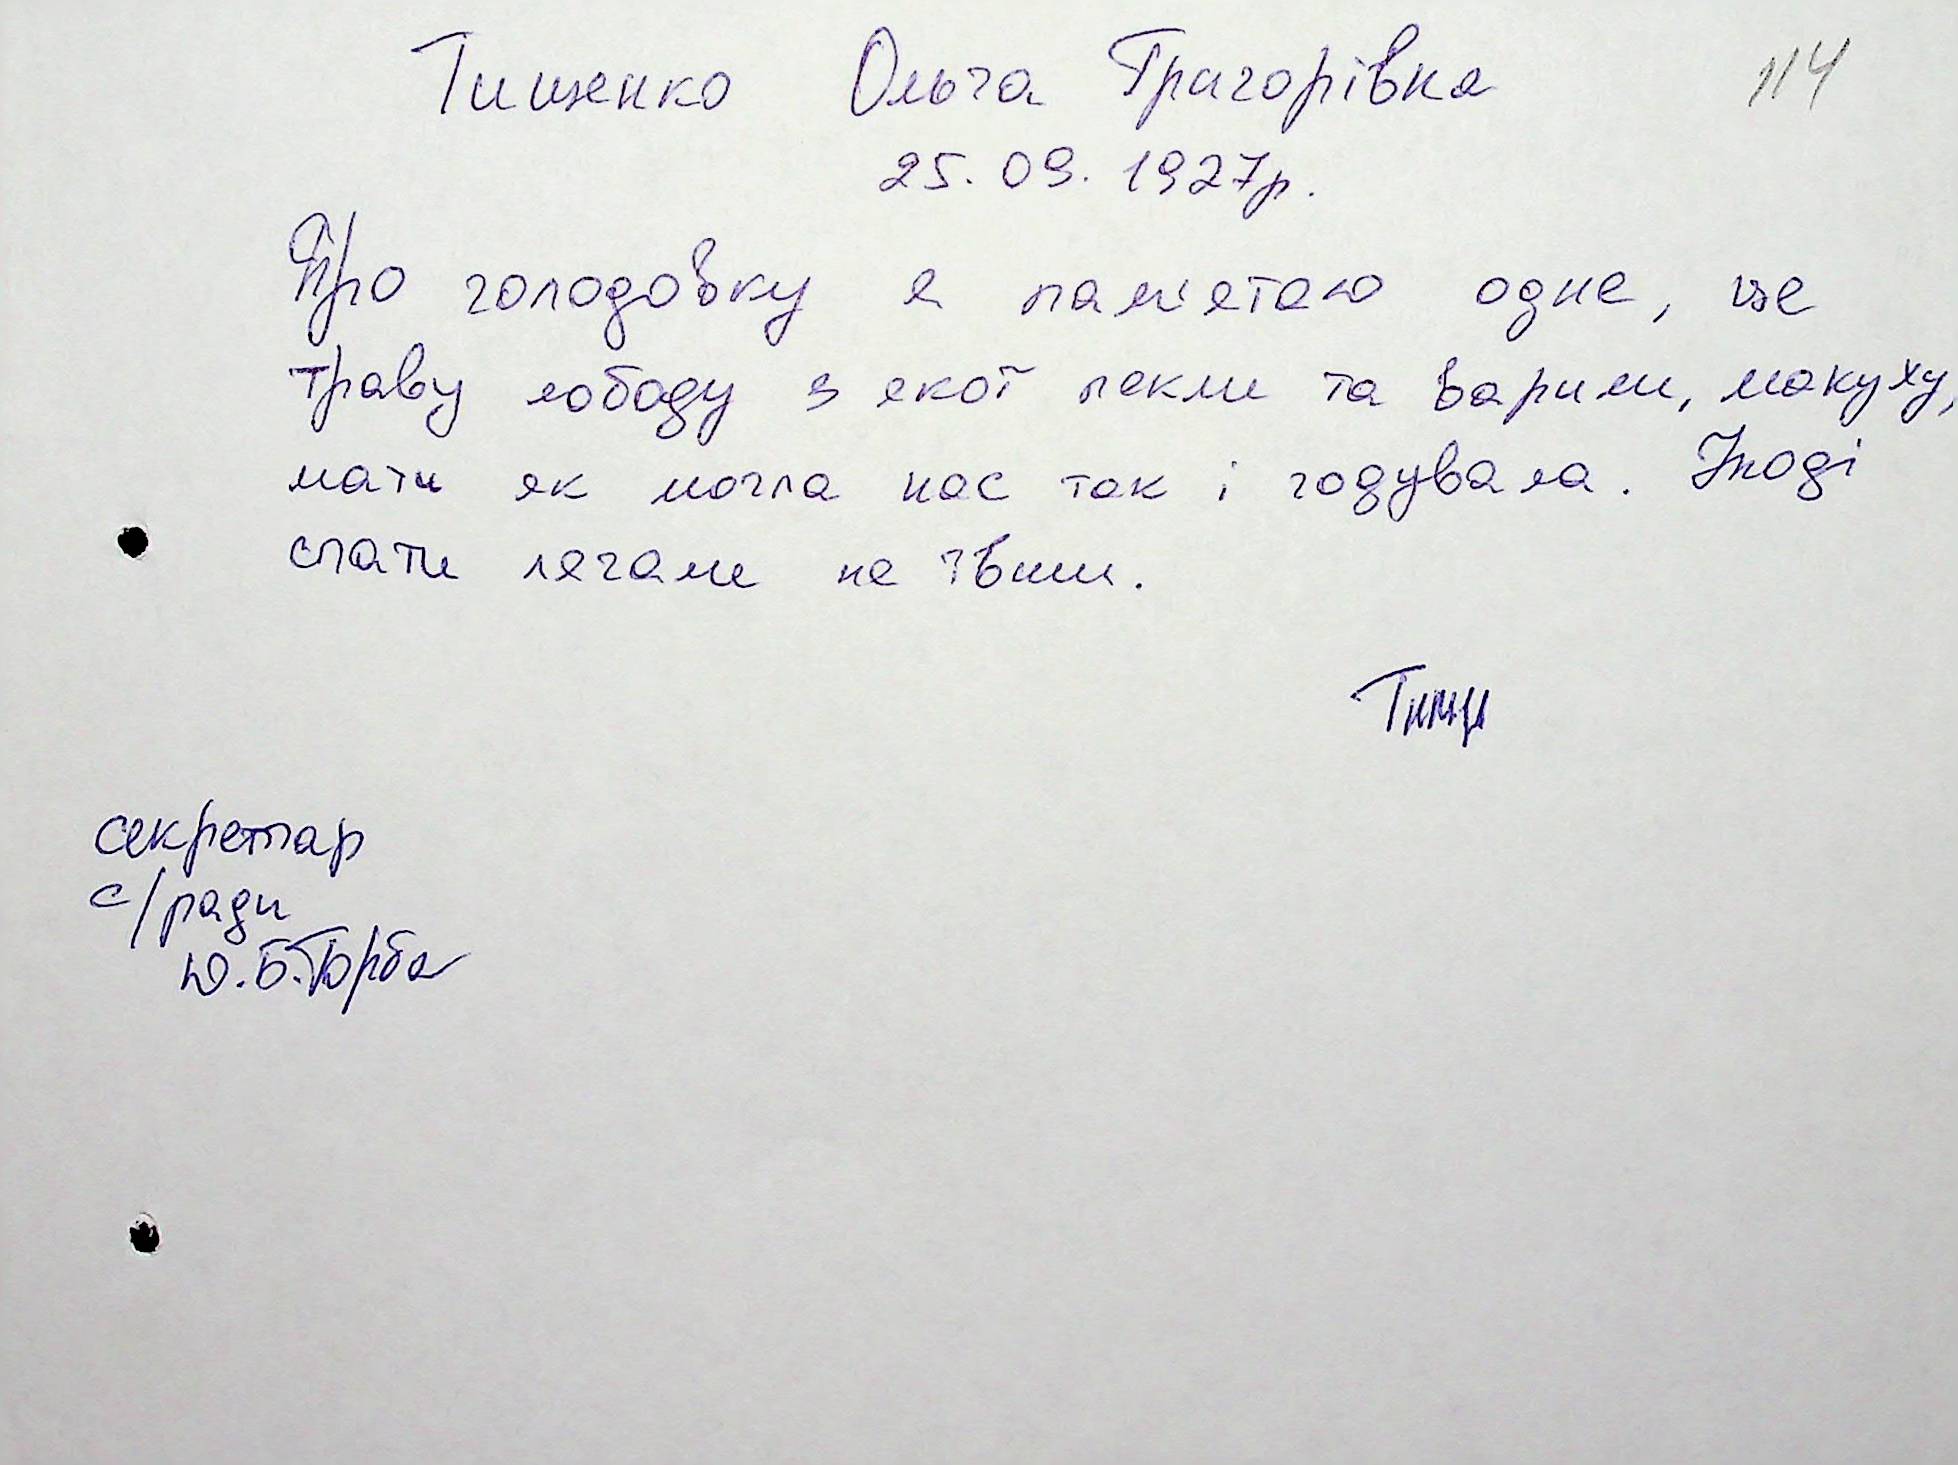 Тищенко Ольга Григорівна 114
25.09.1927р.
Про голодовку я пам'ятаю одне, це
траву лободу з якої пекли та варили, макуху,
мати як могла нас так і годувала. Іноді
спати лягали не ївши.
Тищ
секретар
с/ради
Ю.Б.Торба